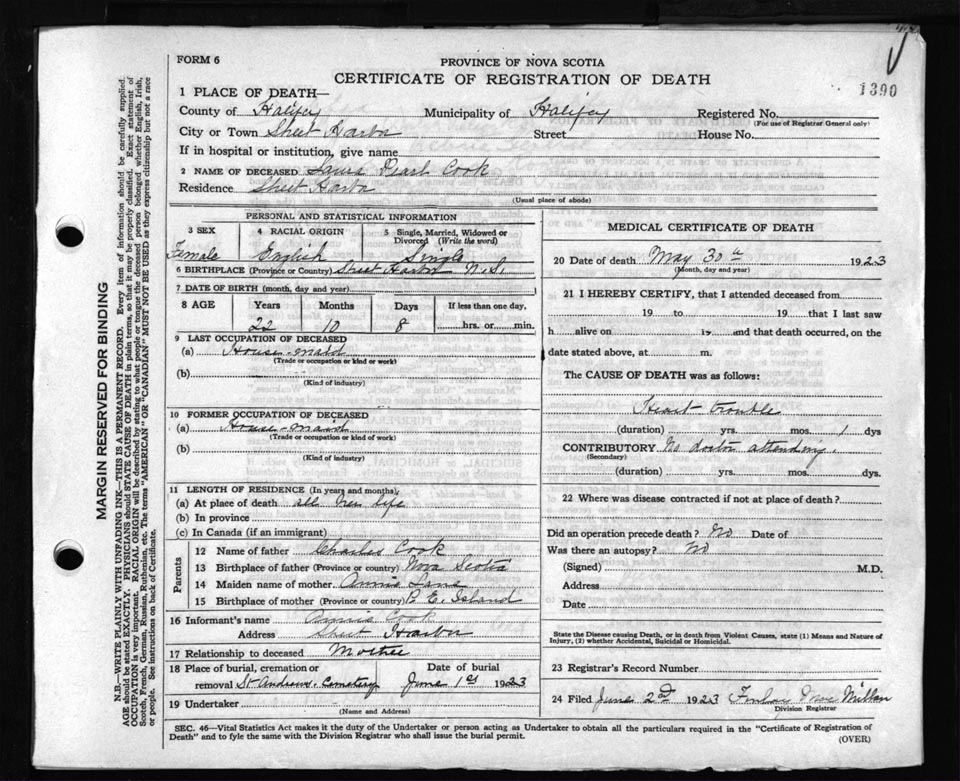 FORM 6
PROVINCE OF NOVA SCOTIA
CERTIFICATE OF REGISTRATION OF DEATH
1390
1 PLACE OF DEATH—
County of Halifax Municipality of Halifax Registered No.
(For use of Registrar General only)
City or Town Sheet Harbor Street House No.
If in hospital or institution, give name
2 NAME OF DECEASED Laura Pearl Cook
Residence Sheet Harbor
(Usual place of abode)
PERSONAL AND STATISTICAL INFORMATION
3 SEX 4 RACIAL ORIGIN 5 Single, Married, Widowed or Divorced (Write the word)
Female English Single
6 BIRTHPLACE (Province or Country) Sheet Harbor N.S.
7 DATE OF BIRTH (month, day and year)
8 AGE Years Months Days If less than one day,
22 10 8 hrs. or min.
9 LAST OCCUPATION OF DECEASED
(a) House-maid
(Trade or occupation or kind or work)
(b)
(Kind of industry)
10 FORMER OCCUPATION OF DECEASED
(a) House-maid
(Trade or occupation or kind of work)
(b)
(Kind of industry)
11 LENGTH OF RESIDENCE (In years and months)
(a) At place of death all her life
(b) In province
(c) In Canada (if an immigrant)
Parents
12 Name of father Charles Cook
13 Birthplace of father (Province or country) Nova Scotia
14 Maiden name of mother Annie Lane
15 Birthplace of mother (Province or country) P. E. Island
16 Informant's name Annie Cook
Address Sheet Harbor
17 Relationship to deceased Mother
18 Place of burial, cremation or Date of burial
removal St Andrews Cemetery June 1st 1923
19 Undertaker
(Name and Address)
MEDICAL CERTIFICATE OF DEATH
20 Date of death May 30th 1923
(Month, day and year)
21 I HEREBY CERTIFY, that I attended deceased from
19 to 19 that I last saw
h alive on 19 and that death occurred, on the
date stated above, at m.
The CAUSE OF DEATH was as follows:
Heart trouble
(duration) yrs. mos. 1 dys
CONTRIBUTORY No doctor attending.
(Secondary)
(duration) yrs. mos. dys.
22 Where was disease contracted if not at place of death?
Did an operation precede death? No Date of
Was there an autopsy? No
(Signed) M.D.
Address
Date
State the Disease causing Death, or in death from Violent Causes, state (1) Means and Nature of
Injury, (2) whether Accidental, Suicidal or Homicidal.
23 Registrar's Record Number
24 Filed June 2nd 1923 Finlay Millan
Division Registrar
SEC. 46—Vital Statistics Act makes it the duty of the Undertaker or person acting as Undertaker to obtain all the particulars required in the "Certificate of Registration of
Death" and to fyle the same with the Division Registrar who shall issue the burial permit.
(OVER)
MARGIN RESERVED FOR BINDING
N.B.—WRITE PLAINLY WITH UNFADING INK—THIS IS A PERMANENT RECORD. Every item of information should be carefully supplied.
AGE should be stated EXACTLY. PHYSICIANS should STATE CAUSE OF DEATH in plain terms, so that it may be properly classified. Exact statement of
OCCUPATION is very important. RACIAL ORIGIN will be described by stating to what people or tongue the deceased person belonged whether English, Irish,
Scotch, French, German, Russian, Ruthenian, etc. The terms "AMERICAN" OR "CANADIAN" MUST NOT BE USED as they express citizenship but not a race
or people. See instructions on back of Certificate.